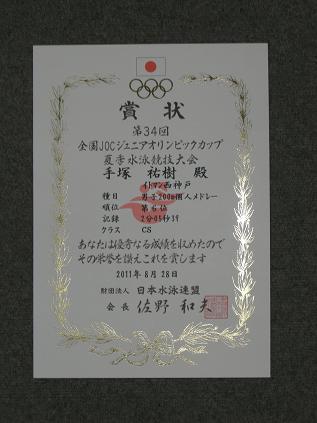 賞状
第34回
全国JOCジュニアオリンピックカップ
夏季水泳競技大会
手塚 祐樹 殿
イトマン西神戸
種目 男子200m個人メドレー
順位 第6位
記録 2分05秒39
クラス CS
あなたは優秀なる成績を収めたので
その栄誉を讃えこれを賞します
2011年8月28日
財団法人 日本水泳連盟
会長 佐野 和夫